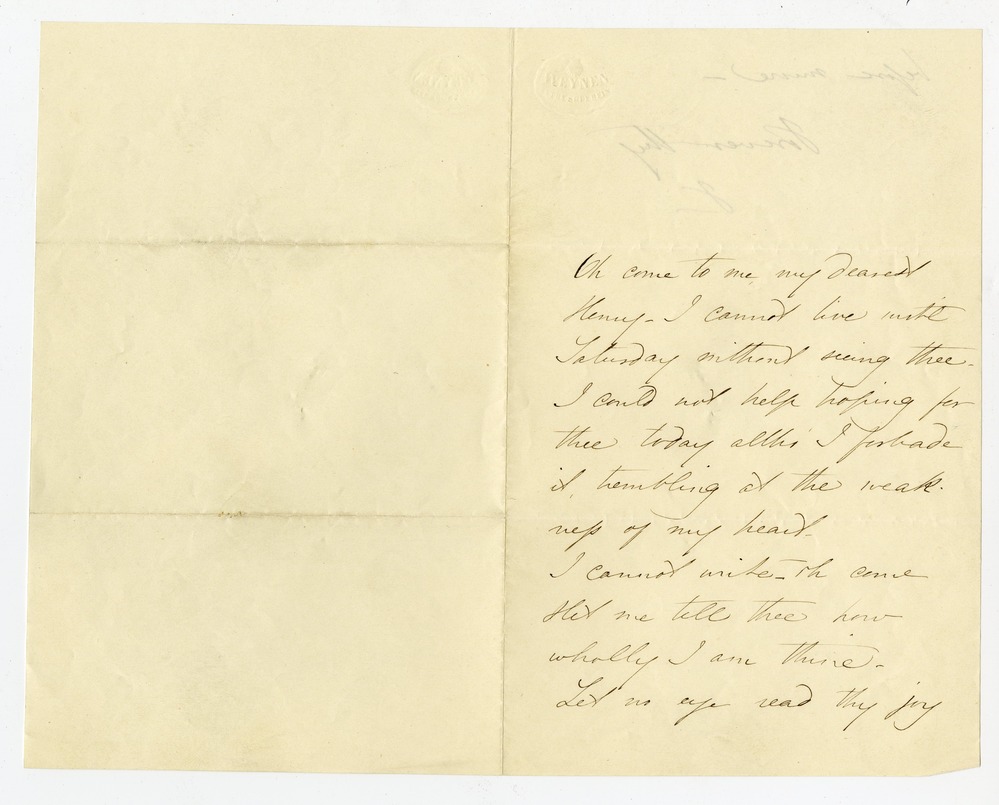 Oh come to me, my dearest
Henry - I cannot live until
Saturday without seeing thee -
I could not help hoping for
thee today altho I forbade
it, trembling at the weak-
ness of my heart.
I cannot write - oh come
& let me tell thee how
wholly I am thine -
Let no eye read thy joy